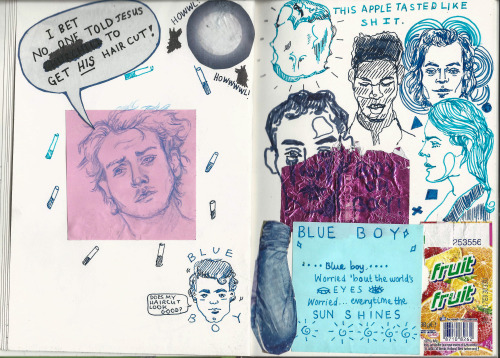 I BET
NO ONE TOLD JESUS
TO
GET HIS HAIRCUT!
HOWWL!
HOWWWWL!
BLUE
DOES MY
HAIRCUT
LOOK
GOOD?
BOY
THIS APPLE TASTED LIKE
SHIT.
BLUE BOY
.... Blue boy....
Worried 'bout the world's
EYES
Worried... everytime the
SUN SHINES
253556
fruit
fruit